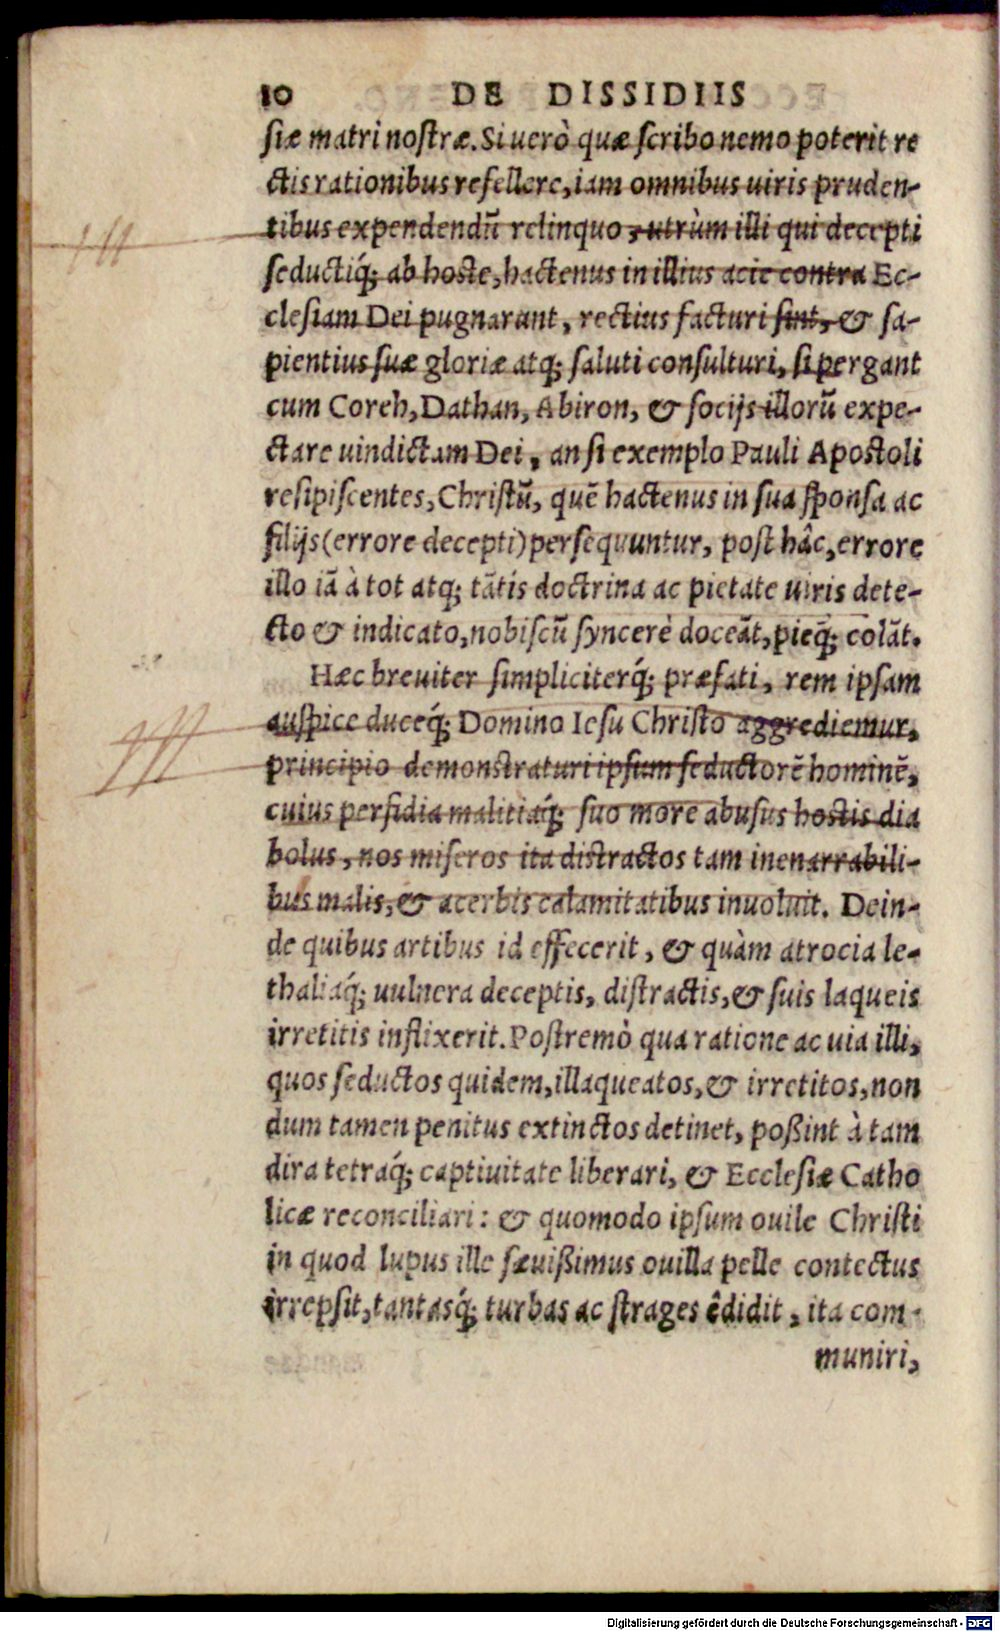 10 DE DISSIDIIS
siæ matri nostræ. Si uerò quæ scribo nemo poterit re
ctis rationibus refellere, iam omnibus uiris pruden-
tibus expendendū relinquo, utrùm illi qui decepti
seductiq́; ab hoste, hactenus in illius acie contra Ec-
clesiam Dei pugnarunt, rectius facturi sint, & sa-
pientius suæ gloriæ atq; saluti consulturi, si pergant
cum Coreh, Dathan, Abiron, & socijs illorū expe-
ctare uindictam Dei, an si exemplo Pauli Apostoli
resipiscentes, Christū, quē hactenus in sua sponsa ac
filijs (errore decepti) persequuntur, post hâc, errore
illo iā à tot atq; tātis doctrina ac pietate uiris dete-
cto & indicato, nobiscū syncerè doceāt, pieq́; colāt.
Hæc breuiter simpliciterq́; præfati, rem ipsam
auspice duceq́; Domino Iesu Christo aggrediemur,
principio demonstraturi ipsum seductorē hominē,
cuius perfidia malitiaq́; suo more abusus hostis dia
bolus, nos miseros ita distractos tam inenarrabili-
bus malis, & acerbis calamitatibus inuoluit. Dein-
de quibus artibus id effecerit, & quàm atrocia le-
thaliaq́; uulnera deceptis, distractis, & suis laqueis
irretitis inflixerit. Postremò qua ratione ac uia illi,
quos seductos quidem, illaqueatos, & irretitos, non
dum tamen penitus extinctos detinet, poßint à tam
dira tetraq́; captiuitate liberari, & Ecclesiæ Catho
licæ reconciliari: & quomodo ipsum ouile Christi
in quod lupus ille sæuißimus ouilla pelle contectus
irrepsit, tantasq́; turbas ac strages êdidit, ita com-
muniri,
Digitalisierung gefördert durch die Deutsche Forschungsgemeinschaft - DFG